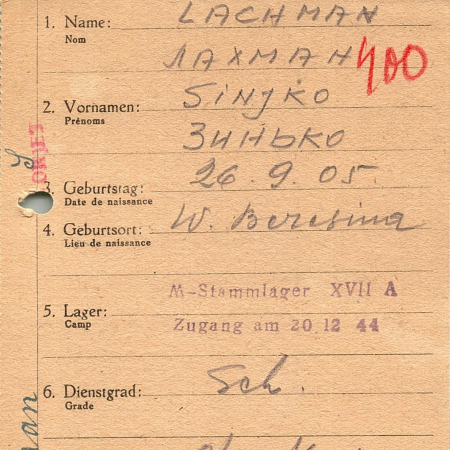 1. Name: LACHMAN
Nom
ЛАХМАН 400
2. Vornamen: SINJKO
Prénoms
ЗИНЬКО
3. Geburtstag: 26.9.05.
Date de naissance
4. Geburtsort: W. Beresina
Lieu de naissance
M-Stammlager XVII A
5. Lager:
Camp
Zugang am 20 12 44
6. Dienstgrad: Sch.
Grade